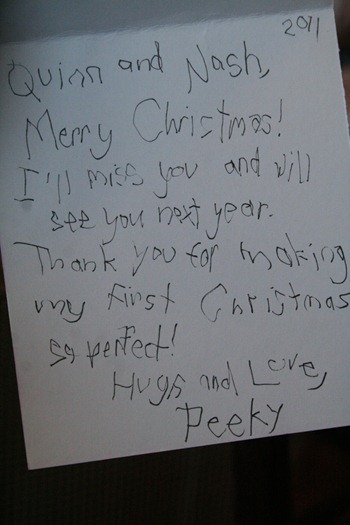 2011
Quinn and Nash,
Merry Christmas!
I'll miss you and will
see you next year.
Thank you for making
my first Christmas
so perfect!
Hugs and Love,
Peeky